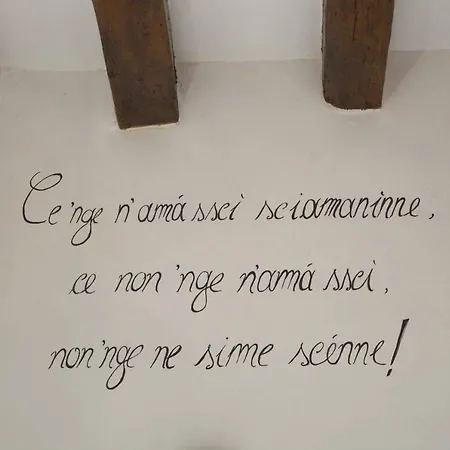 Ce'nge n'amá sscì sciamaninne,
ce non 'nge n'amá sscì,
non'nge ne sime scénne!